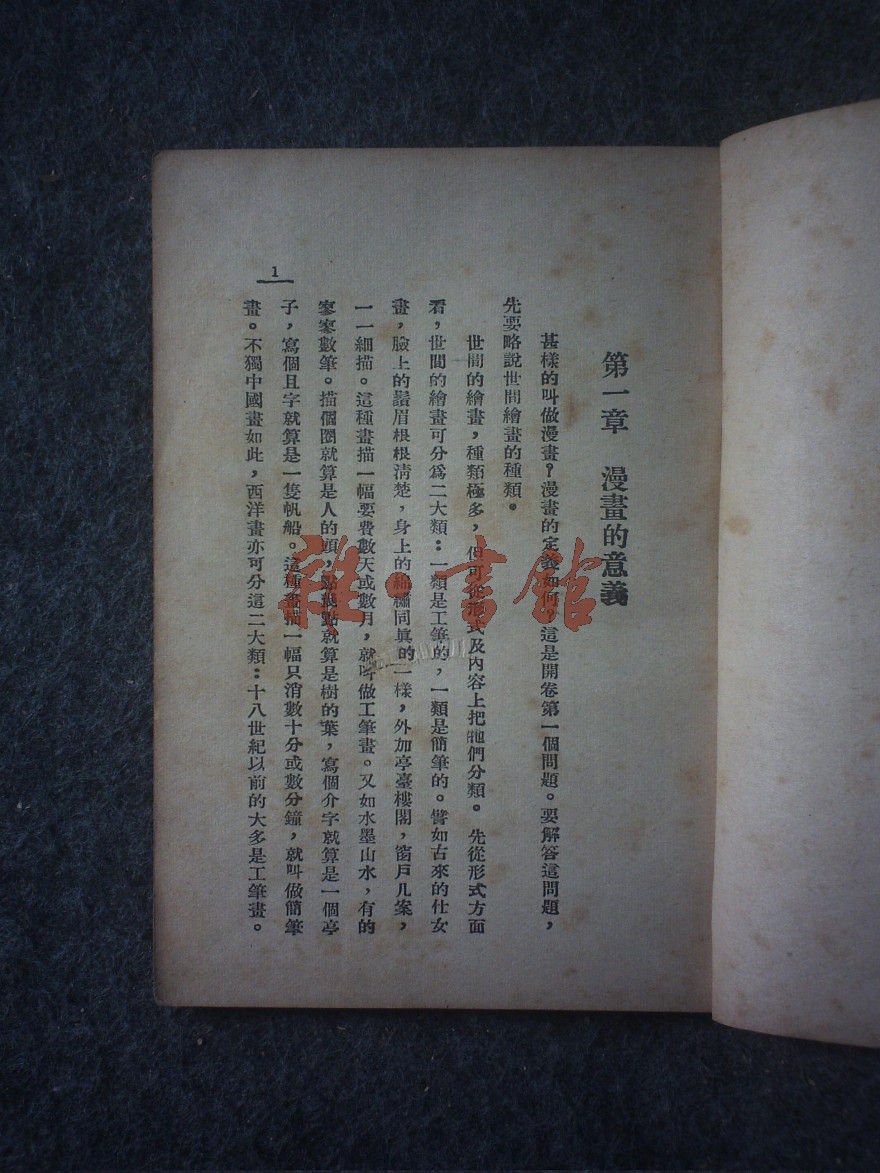 第一章　漫畫的意義
甚樣的叫做漫畫？漫畫的定義如何？這是開卷第一個問題。要解答這問題，
先要略說世間繪畫的種類。
世間的繪畫，種類極多，但可從形式及內容上把牠們分類。先從形式方面
看，世間的繪畫可分爲二大類：一類是工筆的，一類是簡筆的。譬如古來的仕女
畫，臉上的鬚眉根根清楚，身上的錦繡同眞的一樣，外加亭臺樓閣，窗戶几案，
一一細描。這種畫描一幅要費數天或數月，就叫做工筆畫。又如水墨山水，有的
寥寥數筆。描個圈就算是人的頭，點幾點就算是樹的葉，寫個介字就算是一個亭
子，寫個且字就算是一隻帆船。這種畫描一幅只消數十分或數分鐘，就叫做簡筆
畫。不獨中國畫如此，西洋畫亦可分這二大類：十八世紀以前的大多是工筆畫。
1
雜·書館